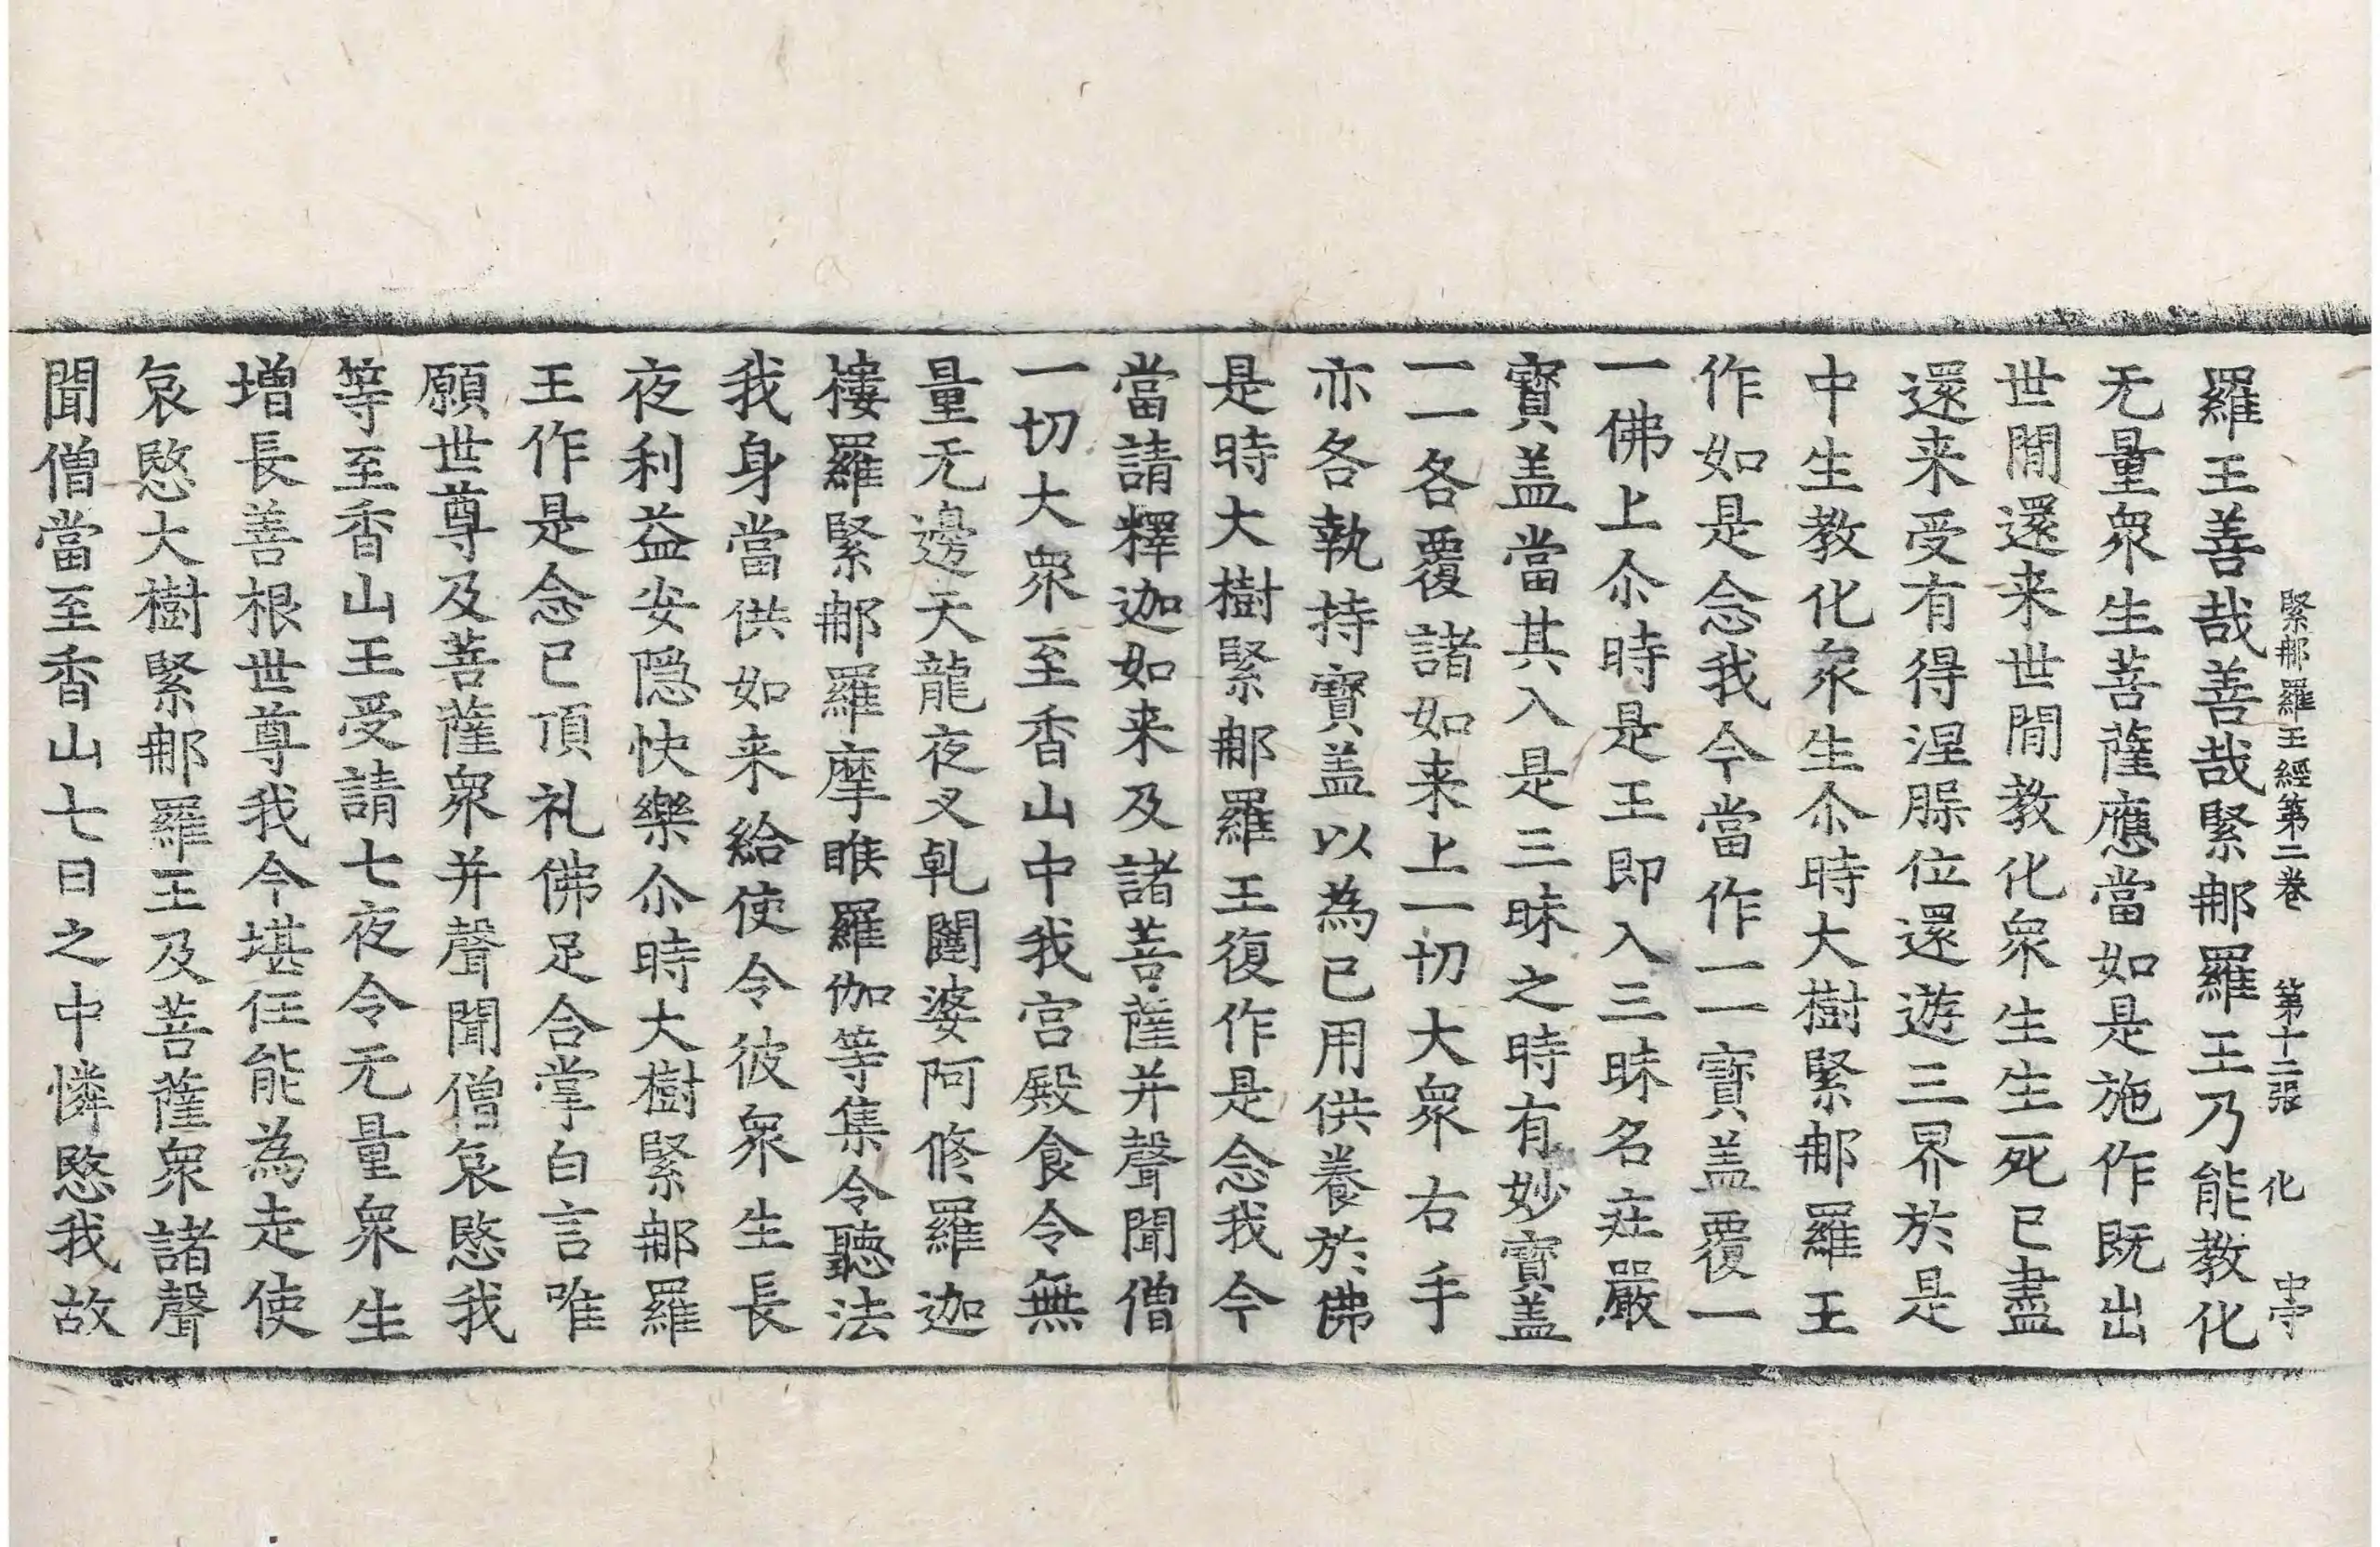 緊那羅王經第二卷 第十二張 化 中守
羅王善哉善哉緊那羅王乃能教化
无量衆生菩薩應當如是施作既出
世間還来世間教化衆生生死已盡
還来受有得涅槃位還遊三界於是
中生教化衆生尒時大樹緊那羅王
作如是念我今當作一一寶盖覆一
一佛上尒時是王即入三昧名莊嚴
寶盖當其入是三昧之時有妙寶盖
一一各覆諸如来上一切大衆右手
亦各執持寶盖以為已用供養於佛
是時大樹緊那羅王復作是念我今
當請釋迦如来及諸菩薩并聲聞僧
一切大衆至香山中我宫殿食令無
量无邊天龍夜叉乹闥婆阿修羅迦
樓羅緊那羅摩睺羅伽等集令聽法
我身當供如来給使令彼衆生長
夜利益安隱快樂尒時大樹緊那羅
王作是念已頂礼佛足合掌白言唯
願世尊及菩薩衆并聲聞僧哀愍我
等至香山王受請七夜令无量衆生
增長善根世尊我今堪任能為走使
哀愍大樹緊那羅王及菩薩衆諸聲
聞僧當至香山七日之中憐愍我故